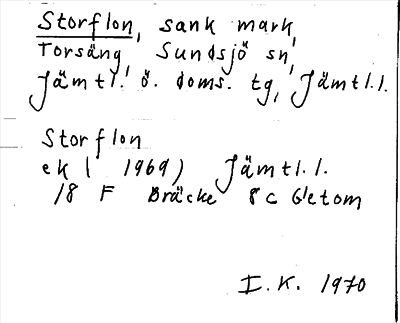 Storflon, sank mark,
Torsäng, Sundsjö sn,
Jämtl. ö. doms. tg, Jämtl.l.
Storflon
ek ( 1969) Jämtl.l.
18 F Bräcke 8c Getom
I.K. 1970